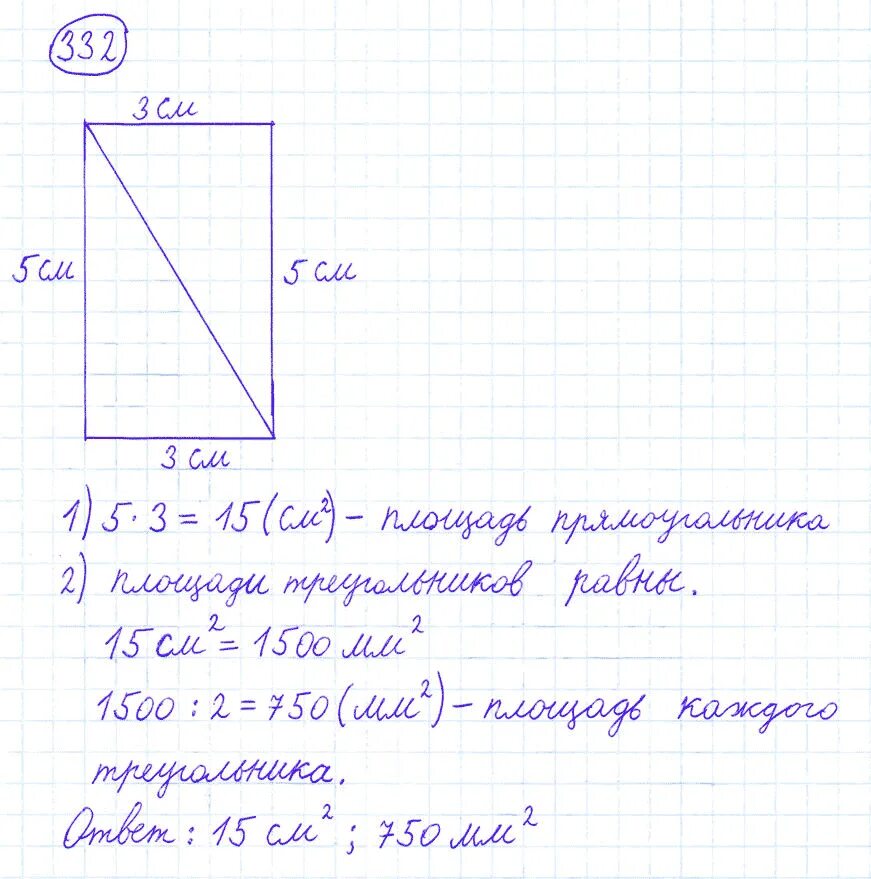 332
3 см
5 см
5 см
3 см
1) 5 · 3 = 15 (см²) – площадь прямоугольника
2) площади треугольников равны.
15 см² = 1500 мм²
1500 : 2 = 750 (мм²) – площадь каждого
треугольника.
Ответ : 15 см² ; 750 мм²